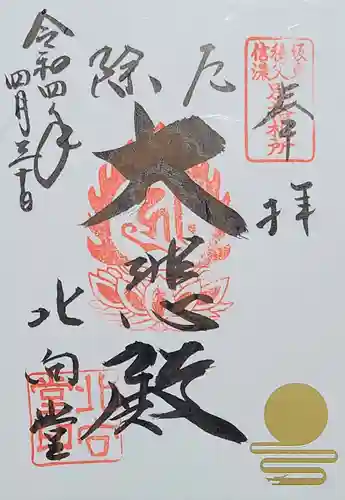 奉拝
坂東
秩父
信濃
札所
厄除
大悲殿
北向堂
令和四年
四月三十日